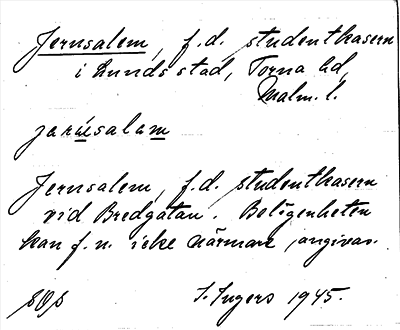 Jerusalem, f.d. studentkasern
i Lunds stad, Torna hd,
Malm. l.
jarusalam
Jerusalem, f.d. studentkasern
vid Bredgatan. Belägenheten
kan f.n. icke närmare angivas.
I. Ingers 1945.